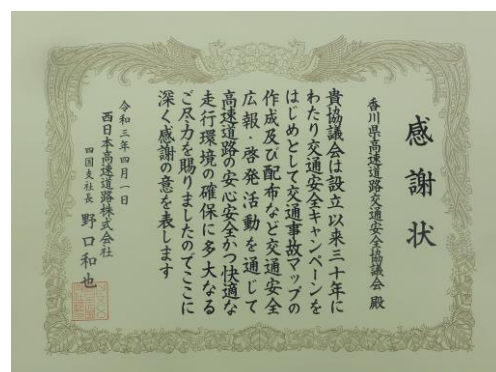 感謝状
香川県高速道路交通安全協議会 殿
貴協議会は設立以来三十年に
わたり交通安全キャンペーンを
はじめとして交通事故マップの
作成及び配布など交通安全
広報・啓発活動を通じて
高速道路の安心安全かつ快適な
走行環境の確保に多大なる
ご尽力を賜りましたのでここに
深く感謝の意を表します
令和三年四月一日
西日本高速道路株式会社
四国支社長 野口和也